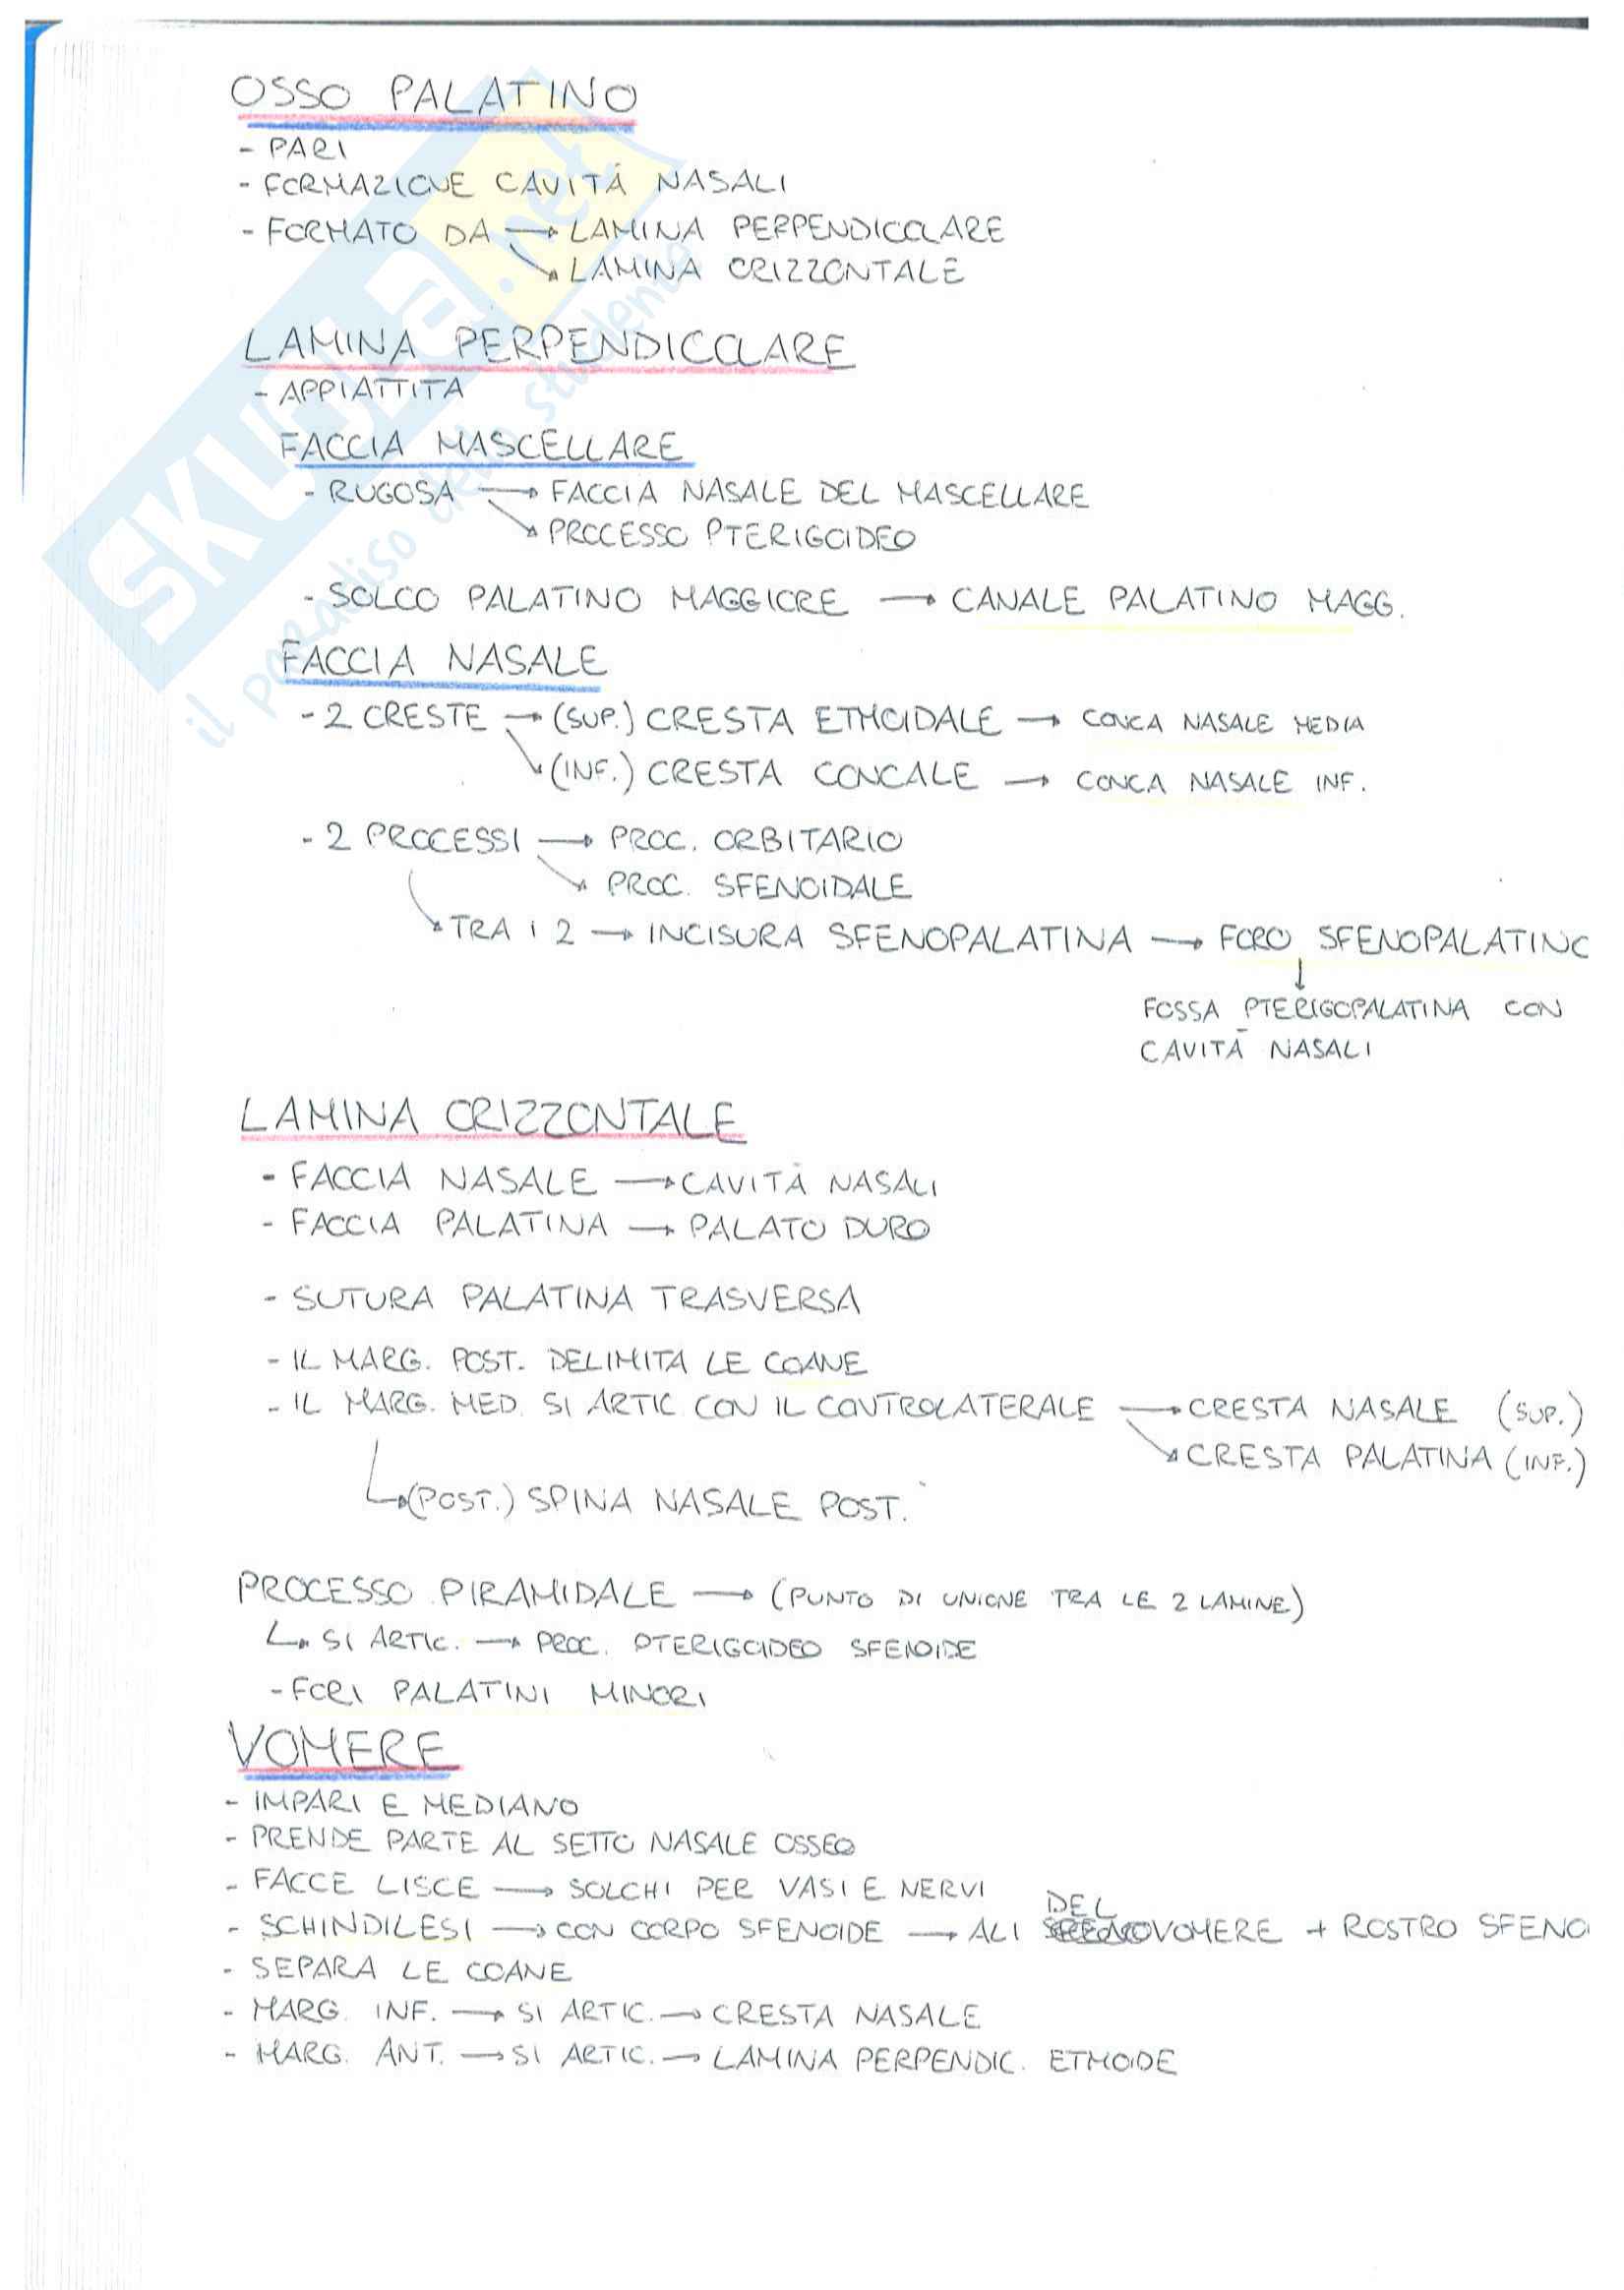 OSSO PALATINO
- PARI
- FORMAZIONE CAVITÁ NASALI
- FORMATO DA → LAMINA PERPENDICOLARE
↘ LAMINA ORIZZONTALE
LAMINA PERPENDICOLARE
- APPIATTITA
FACCIA MASCELLARE
- RUGOSA → FACCIA NASALE DEL MASCELLARE
↘ PROCESSO PTERIGOIDEO
- SOLCO PALATINO MAGGIORE → CANALE PALATINO MAGG.
FACCIA NASALE
- 2 CRESTE → (SUP.) CRESTA ETMOIDALE → CONCA NASALE MEDIA
↘ (INF.) CRESTA CONCALE → CONCA NASALE INF.
- 2 PROCESSI → PROC. ORBITARIO
↘ PROC. SFENOIDALE
↘ TRA I 2 → INCISURA SFENOPALATINA → FORO SFENOPALATINO
↓
FOSSA PTERIGOPALATINA CON
CAVITÁ NASALI
LAMINA ORIZZONTALE
- FACCIA NASALE → CAVITÁ NASALI
- FACCIA PALATINA → PALATO DURO
- SUTURA PALATINA TRASVERSA
- IL MARG. POST. DELIMITA LE COANE
- IL MARG. MED. SI ARTIC CON IL CONTROLATERALE → CRESTA NASALE (SUP.)
↘ CRESTA PALATINA (INF.)
↳ (POST.) SPINA NASALE POST.
PROCESSO PIRAMIDALE → (PUNTO DI UNIONE TRA LE 2 LAMINE)
↳ SI ARTIC. → PROC. PTERIGOIDEO SFENOIDE
- FORI PALATINI MINORI
VOMERE
- IMPARI E MEDIANO
- PRENDE PARTE AL SETTO NASALE OSSEO
- FACCE LISCE → SOLCHI PER VASI E NERVI
- SCHINDILESI → CON CORPO SFENOIDE → ALI DEL VOMERE + ROSTRO SFENO
- SEPARA LE COANE
- MARG. INF. → SI ARTIC. → CRESTA NASALE
- MARG. ANT. → SI ARTIC. → LAMINA PERPENDIC. ETMOIDE
SKUOLA.net
il paradiso dello studente